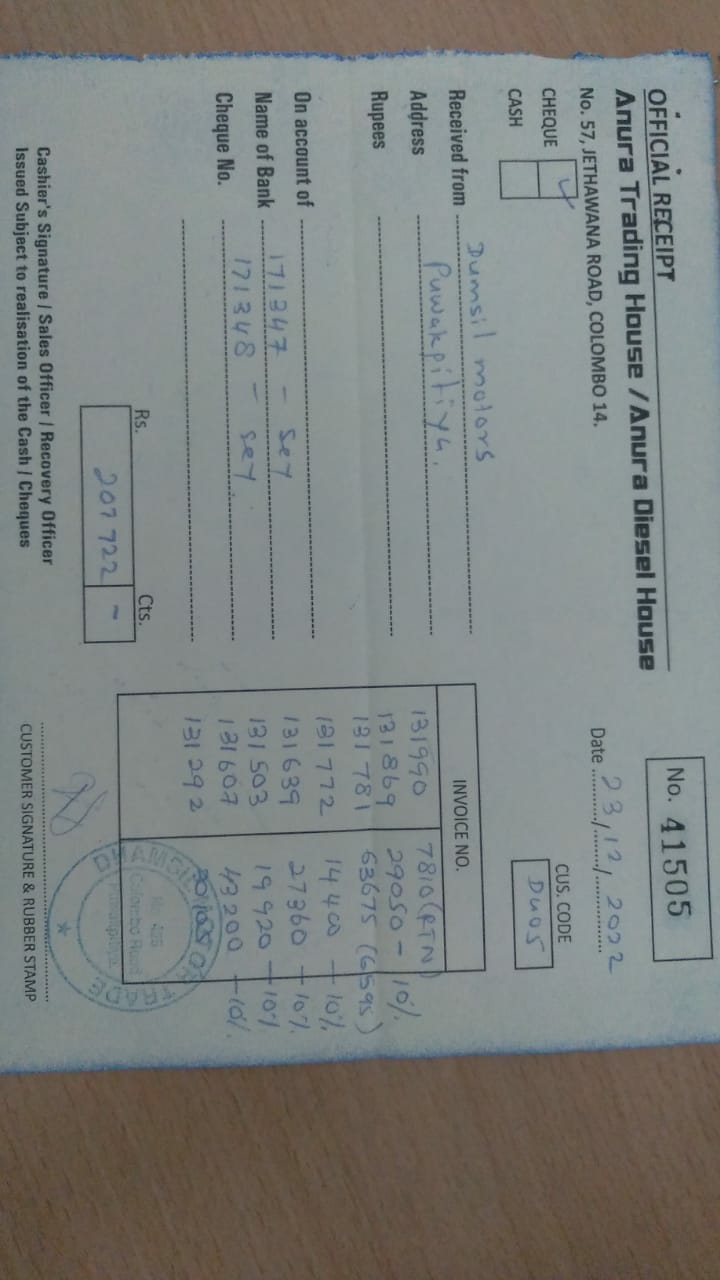 OFFICIAL RECEIPT
Anura Trading House / Anura Diesel House
No. 57, JETHAWANA ROAD, COLOMBO 14.
No. 41505
Date 23/12/2022
CHEQUE
CASH
CUS. CODE
DU05
Received from Dumsil motors
Address Puwakpitiya.
Rupees
On account of
Name of Bank 171347 - Sey
Cheque No. 171348 - Sey
Rs. Cts.
207 722 -
INVOICE NO.
131990 7810 (RTN)
131869 29050 - 10%
131781 63675 (6595)
131772 14400 - 10%
131639 27360 - 10%
131503 19920 - 10%
131607 43200 - 10%
131292
Colombo Road
Cashier's Signature / Sales Officer / Recovery Officer
Issued Subject to realisation of the Cash / Cheques
CUSTOMER SIGNATURE & RUBBER STAMP